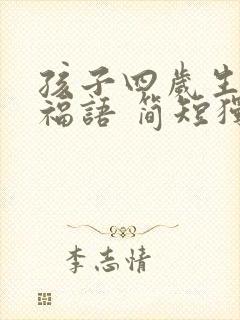 孩子四歲生
福語 簡短獨
李志情